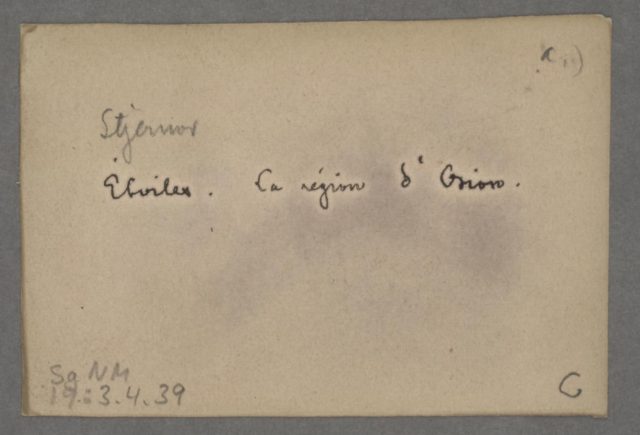 a.)
Stjernor
Étoiles. La région d'Orion.
Sg NM
19:3.4.39
G